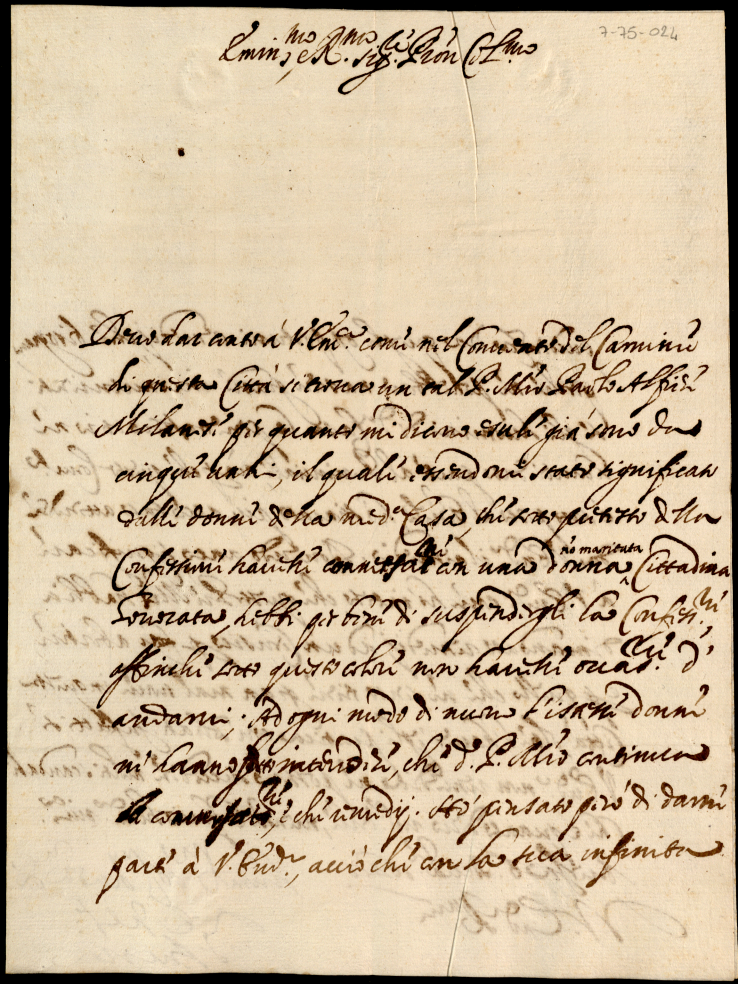 7-75-024
Emin.mo, e R.mo Sig.re P'ron Col.mo
Devo dar conto á V. Em.a come nel Convento del Carmine
di questa Città si trova un tal P. M'ro Paolo Alfieri
Milanese per quanto mi dicono esule già sono da
cinque anni, il quale essendomi stato significato
dalle donne della med.a Casa, che sotto pretesto della
Confessione havesse conversat.ne con una donna no maritata Cittadina
Loverata, hebbi per bene di suspendergli la Confess.ne
affinche sotto questo colore non havesse occas.ne d'
andarvi; Ad ogni modo di nuovo l'istesse donne
mi hanno fatto intendere, che d.o P. M'ro continua
la conversat.ne, e che remedij. Hò pensato però di darne
parte à V. Em.a, acciò che con la sua infinita